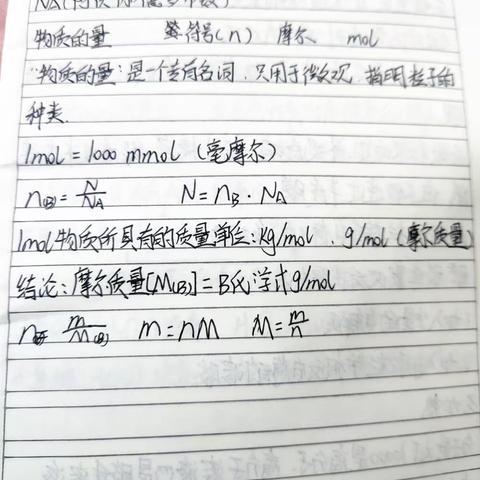 NA(
物质的量 符号(n) 摩尔 mol
"物质的量"是一个专有名词,只用于微观,指明粒子的
种类.
1mol=1000 mmol (毫摩尔)
n(B)=N/NA N=nB·NA
1mol物质所具有的质量单位:kg/mol、g/mol (摩尔质量)
结论:摩尔质量[M(B)]=B化学式g/mol
n= m/M(B) m=nM M=m/n